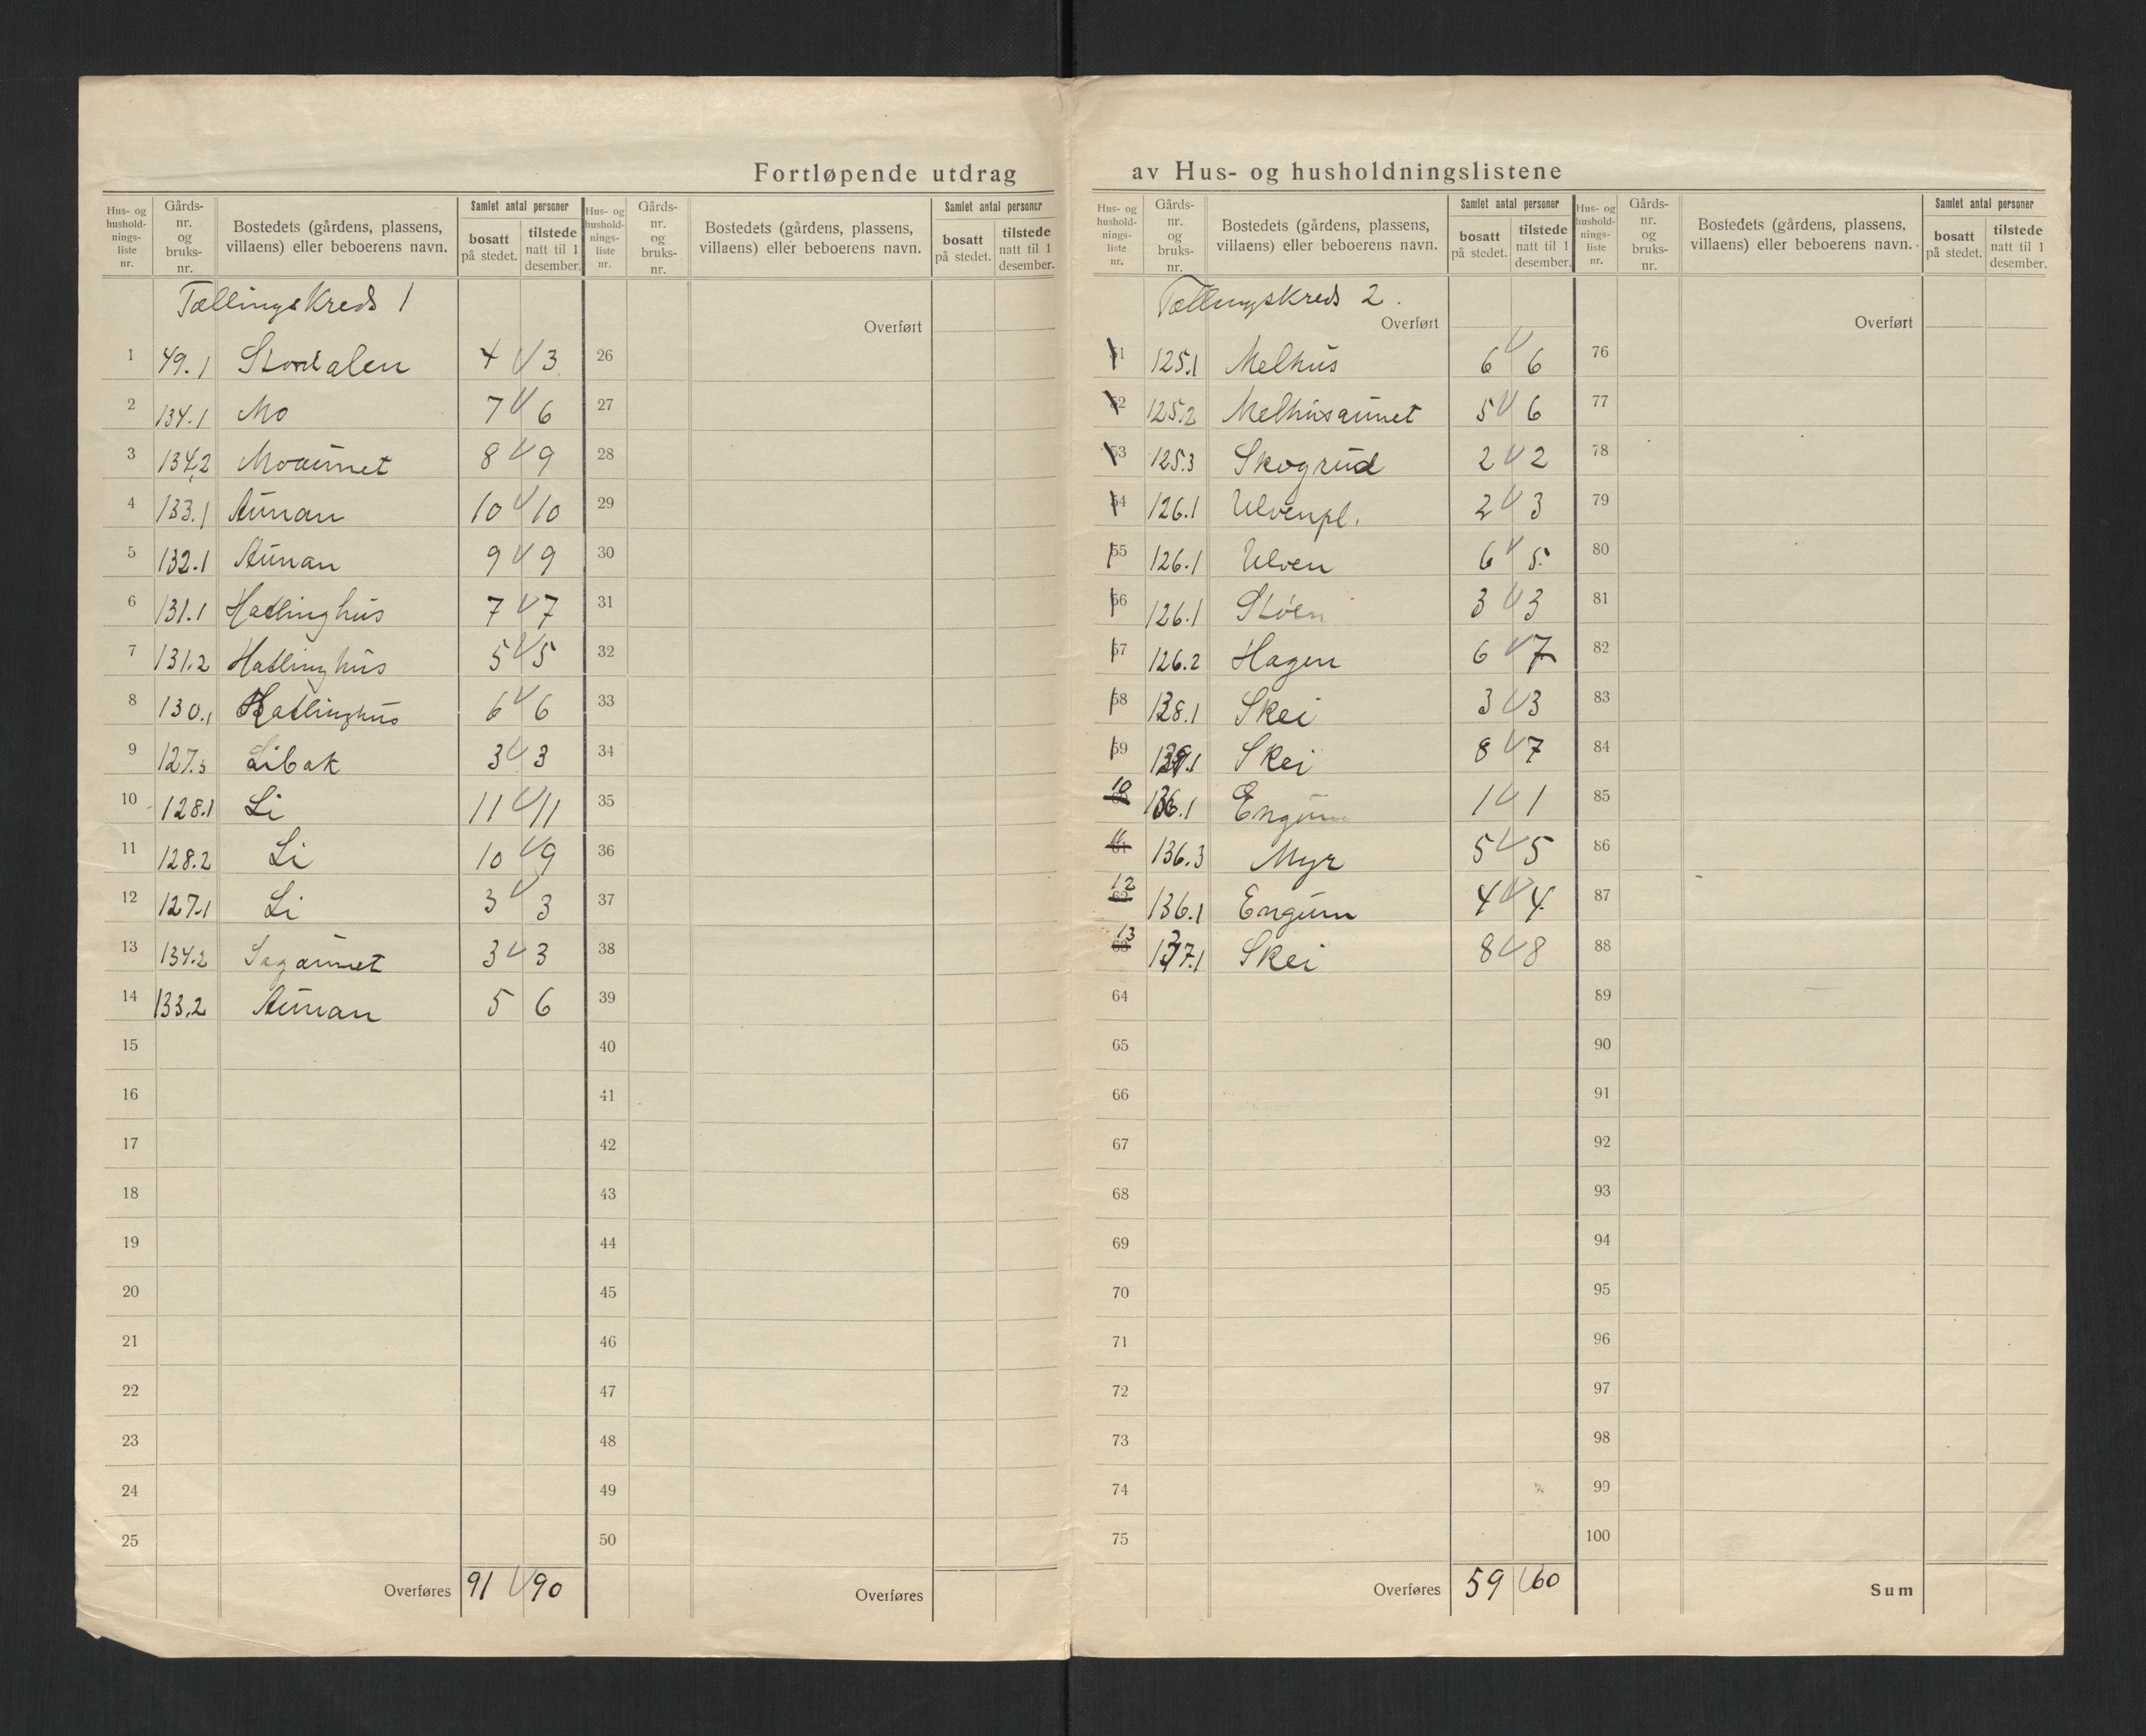 Fortløpende utdrag av Hus- og husholdningslistene
Hus- og hushold-nings-liste nr. Gårds-nr. og bruks-nr. Bostedets (gårdens, plassens, villaens) eller beboerens navn. Samlet antal personer bosatt på stedet. tilstede natt til 1 desember.
Tællingskreds 1
1 49.1 Stordalen 4 3
2 134.1 Mo 7 6
3 134.2 Moaunet 8 9
4 133.1 Aunan 10 10
5 132.1 Aunan 9 9
6 131.1 Hatlinghus 7 7
7 131.2 Hatlinghus 5 5
8 130.1 Hatlinghus 6 6
9 127.3 Libak 3 3
10 128.1 Li 11 11
11 128.2 Li 10 9
12 127.1 Li 3 3
13 134.2 Sagaunet 3 3
14 133.2 Aunan 5 6
15
16
17
18
19
20
21
22
23
24
25
Overføres 91 90
Hus- og hushold-nings-liste nr. Gårds-nr. og bruks-nr. Bostedets (gårdens, plassens, villaens) eller beboerens navn. Samlet antal personer bosatt på stedet. tilstede natt til 1 desember.
Overført
26
27
28
29
30
31
32
33
34
35
36
37
38
39
40
41
42
43
44
45
46
47
48
49
50
Overføres
Hus- og hushold-nings-liste nr. Gårds-nr. og bruks-nr. Bostedets (gårdens, plassens, villaens) eller beboerens navn. Samlet antal personer bosatt på stedet. tilstede natt til 1 desember.
Tællingskreds 2.
Overført
51 125.1 Melhus 6 6
52 125.2 Melhusaunet 5 6
53 125.3 Skogrud 2 2
54 126.1 Ulvenpl. 2 3
55 126.1 Ulven 6 5
56 126.1 Støen 3 3
57 126.2 Hagen 6 7
58 138.1 Skei 3 3
59 Skei 8 7
10 136.1 Engum 1 1
11 136.3 Myr 5 5
12 136.1 Engum 4 4
13 137.1 Skei 8 8
64
65
66
67
68
69
70
71
72
73
74
75
Overføres 59 60
Hus- og hushold-nings-liste nr. Gårds-nr. og bruks-nr. Bostedets (gårdens, plassens, villaens) eller beboerens navn. Samlet antal personer bosatt på stedet. tilstede natt til 1 desember.
Overført
76
77
78
79
80
81
82
83
84
85
86
87
88
89
90
91
92
93
94
95
96
97
98
99
100
Sum